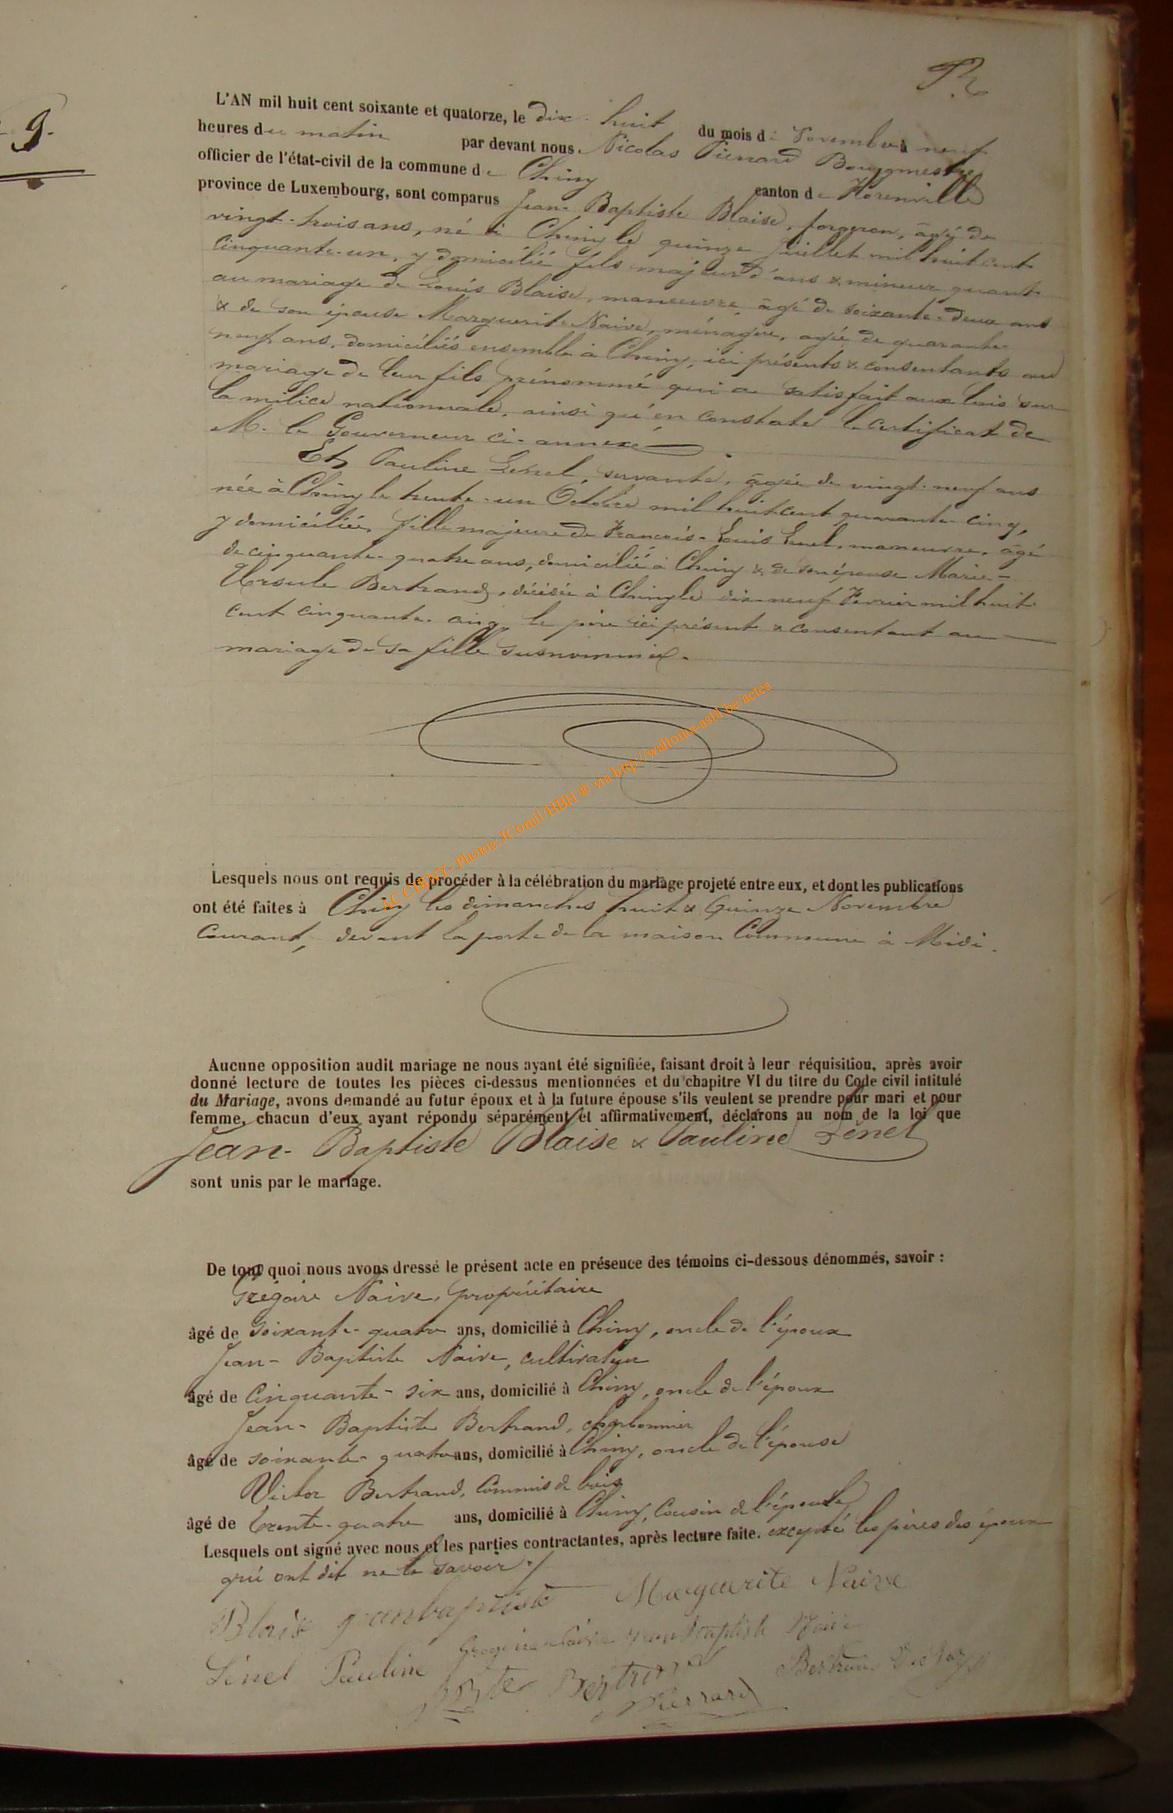 9.
L'AN mil huit cent soixante et quatorze, le dix-huit du mois de Novembre à neuf
heures du matin par devant nous Nicolas Pierrard Bourgmestre
officier de l'état-civil de la commune de Chiny canton de Florenville
province de Luxembourg, sont comparus Jean Baptiste Blaise, forgeron, âgé de
vingt-trois ans, né à Chiny le quinze Juillet mil huit cent
cinquante-un, y domicilié fils majeur d'ans & mineur quant
au mariage de Louis Blaise, manoeuvre âgé de soixante-deux ans
& de son épouse Marguerite Naive, ménagère, agée de quarante
neuf ans, domiciliés ensemble à Chiny, ici présents & consentants au
mariage de leur fils prénommé qui a satisfait aux lois sur
la milice nationnale, ainsi qu'en constate le certificat de
M. le Gouverneur ci-annexé.
Et Pauline Lenel, servante, âgée de vingt-neuf ans
née à Chiny le trente-un Octobre mil huit cent quarante-cinq,
y domiciliée, fille majeure de François-Louis Lenel, manoeuvre, âgé
de cinquante-quatre ans, domicilié à Chiny & de son épouse Marie-
Ursule Bertrand, décédée à Chiny le dix-neuf Fevrier mil huit
cent cinquante-cinq le père ici présent & consentant au
mariage de sa fille susnommée.
Lesquels nous ont requis de procéder à la célébration du mariage projeté entre eux, et dont les publications
ont été faites à Chiny les dimanches huit & Quinze Novembre
Courant, devant la porte de la maison Commune à Midi.
Aucune opposition audit mariage ne nous ayant été signifiée, faisant droit à leur réquisition, après avoir
donné lecture de toutes les pièces ci-dessus mentionnées et du chapitre VI du titre du Code civil intitulé
du Mariage, avons demandé au futur époux et à la future épouse s'ils veulent se prendre pour mari et pour
femme, chacun d'eux ayant répondu séparément et affirmativement, déclarons au nom de la loi que
Jean-Baptiste Blaise & Pauline Lenel
sont unis par le mariage.
De tout quoi nous avons dressé le présent acte en présence des témoins ci-dessous dénommés, savoir :
Grégoire Naive, propriétaire
âgé de Soixante-quatre ans, domicilié à Chiny, oncle de l'époux
Jean-Baptiste Naive, cultivateur
âgé de Cinquante-six ans, domicilié à Chiny, oncle de l'époux
Jean-Baptiste Bertrand, charbonnier
âgé de soixante-quatre ans, domicilié à Chiny, oncle de l'épouse
Victor Bertrand, Commis de bois
âgé de trente-quatre ans, domicilié à Chiny, Cousin de l'épouse
Lesquels ont signé avec nous et les parties contractantes, après lecture faite. excepté les pères des époux
qui ont dit ne le savoir./
Blaise jeanbaptiste Marguerite Naive
Gregoire Naive jean Baptiste Naive
Lénel Pauline JBte Bertrand Bertrand Victor
Pierrard